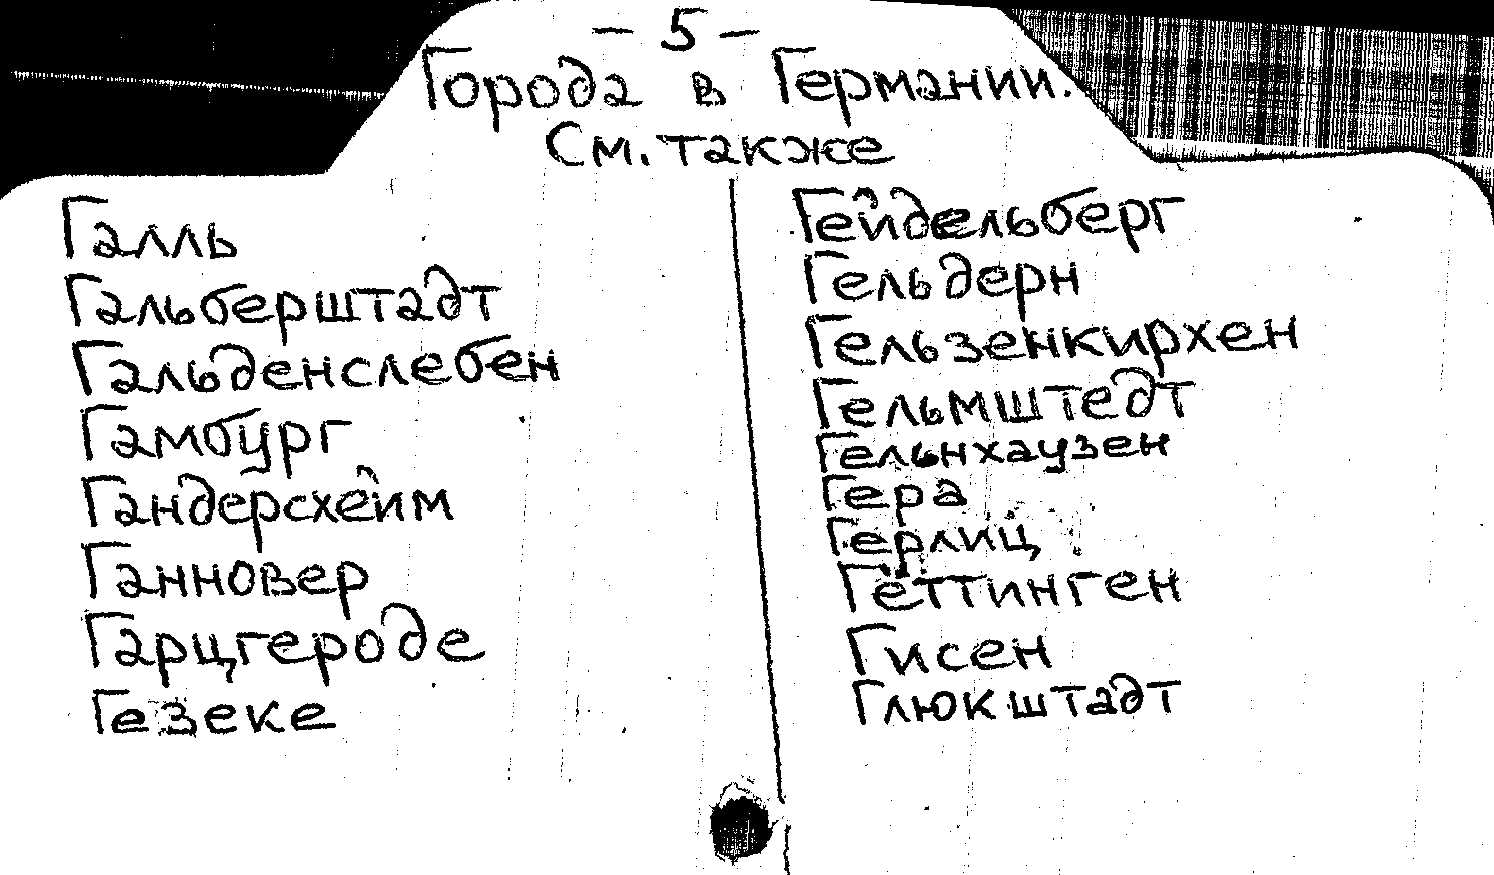 - 5 -
Города в Германии.
См. также
Галль
Гальберштадт
Гальденслебен
Гамбург
Гандерсхейм
Ганновер
Гарцгероде
Гезеке
Гейдельберг
Гельдерн
Гельзенкирхен
Гельмштедт
Гельнхаузен
Гера
Герлиц
Гёттинген
Гисен
Глюкштадт